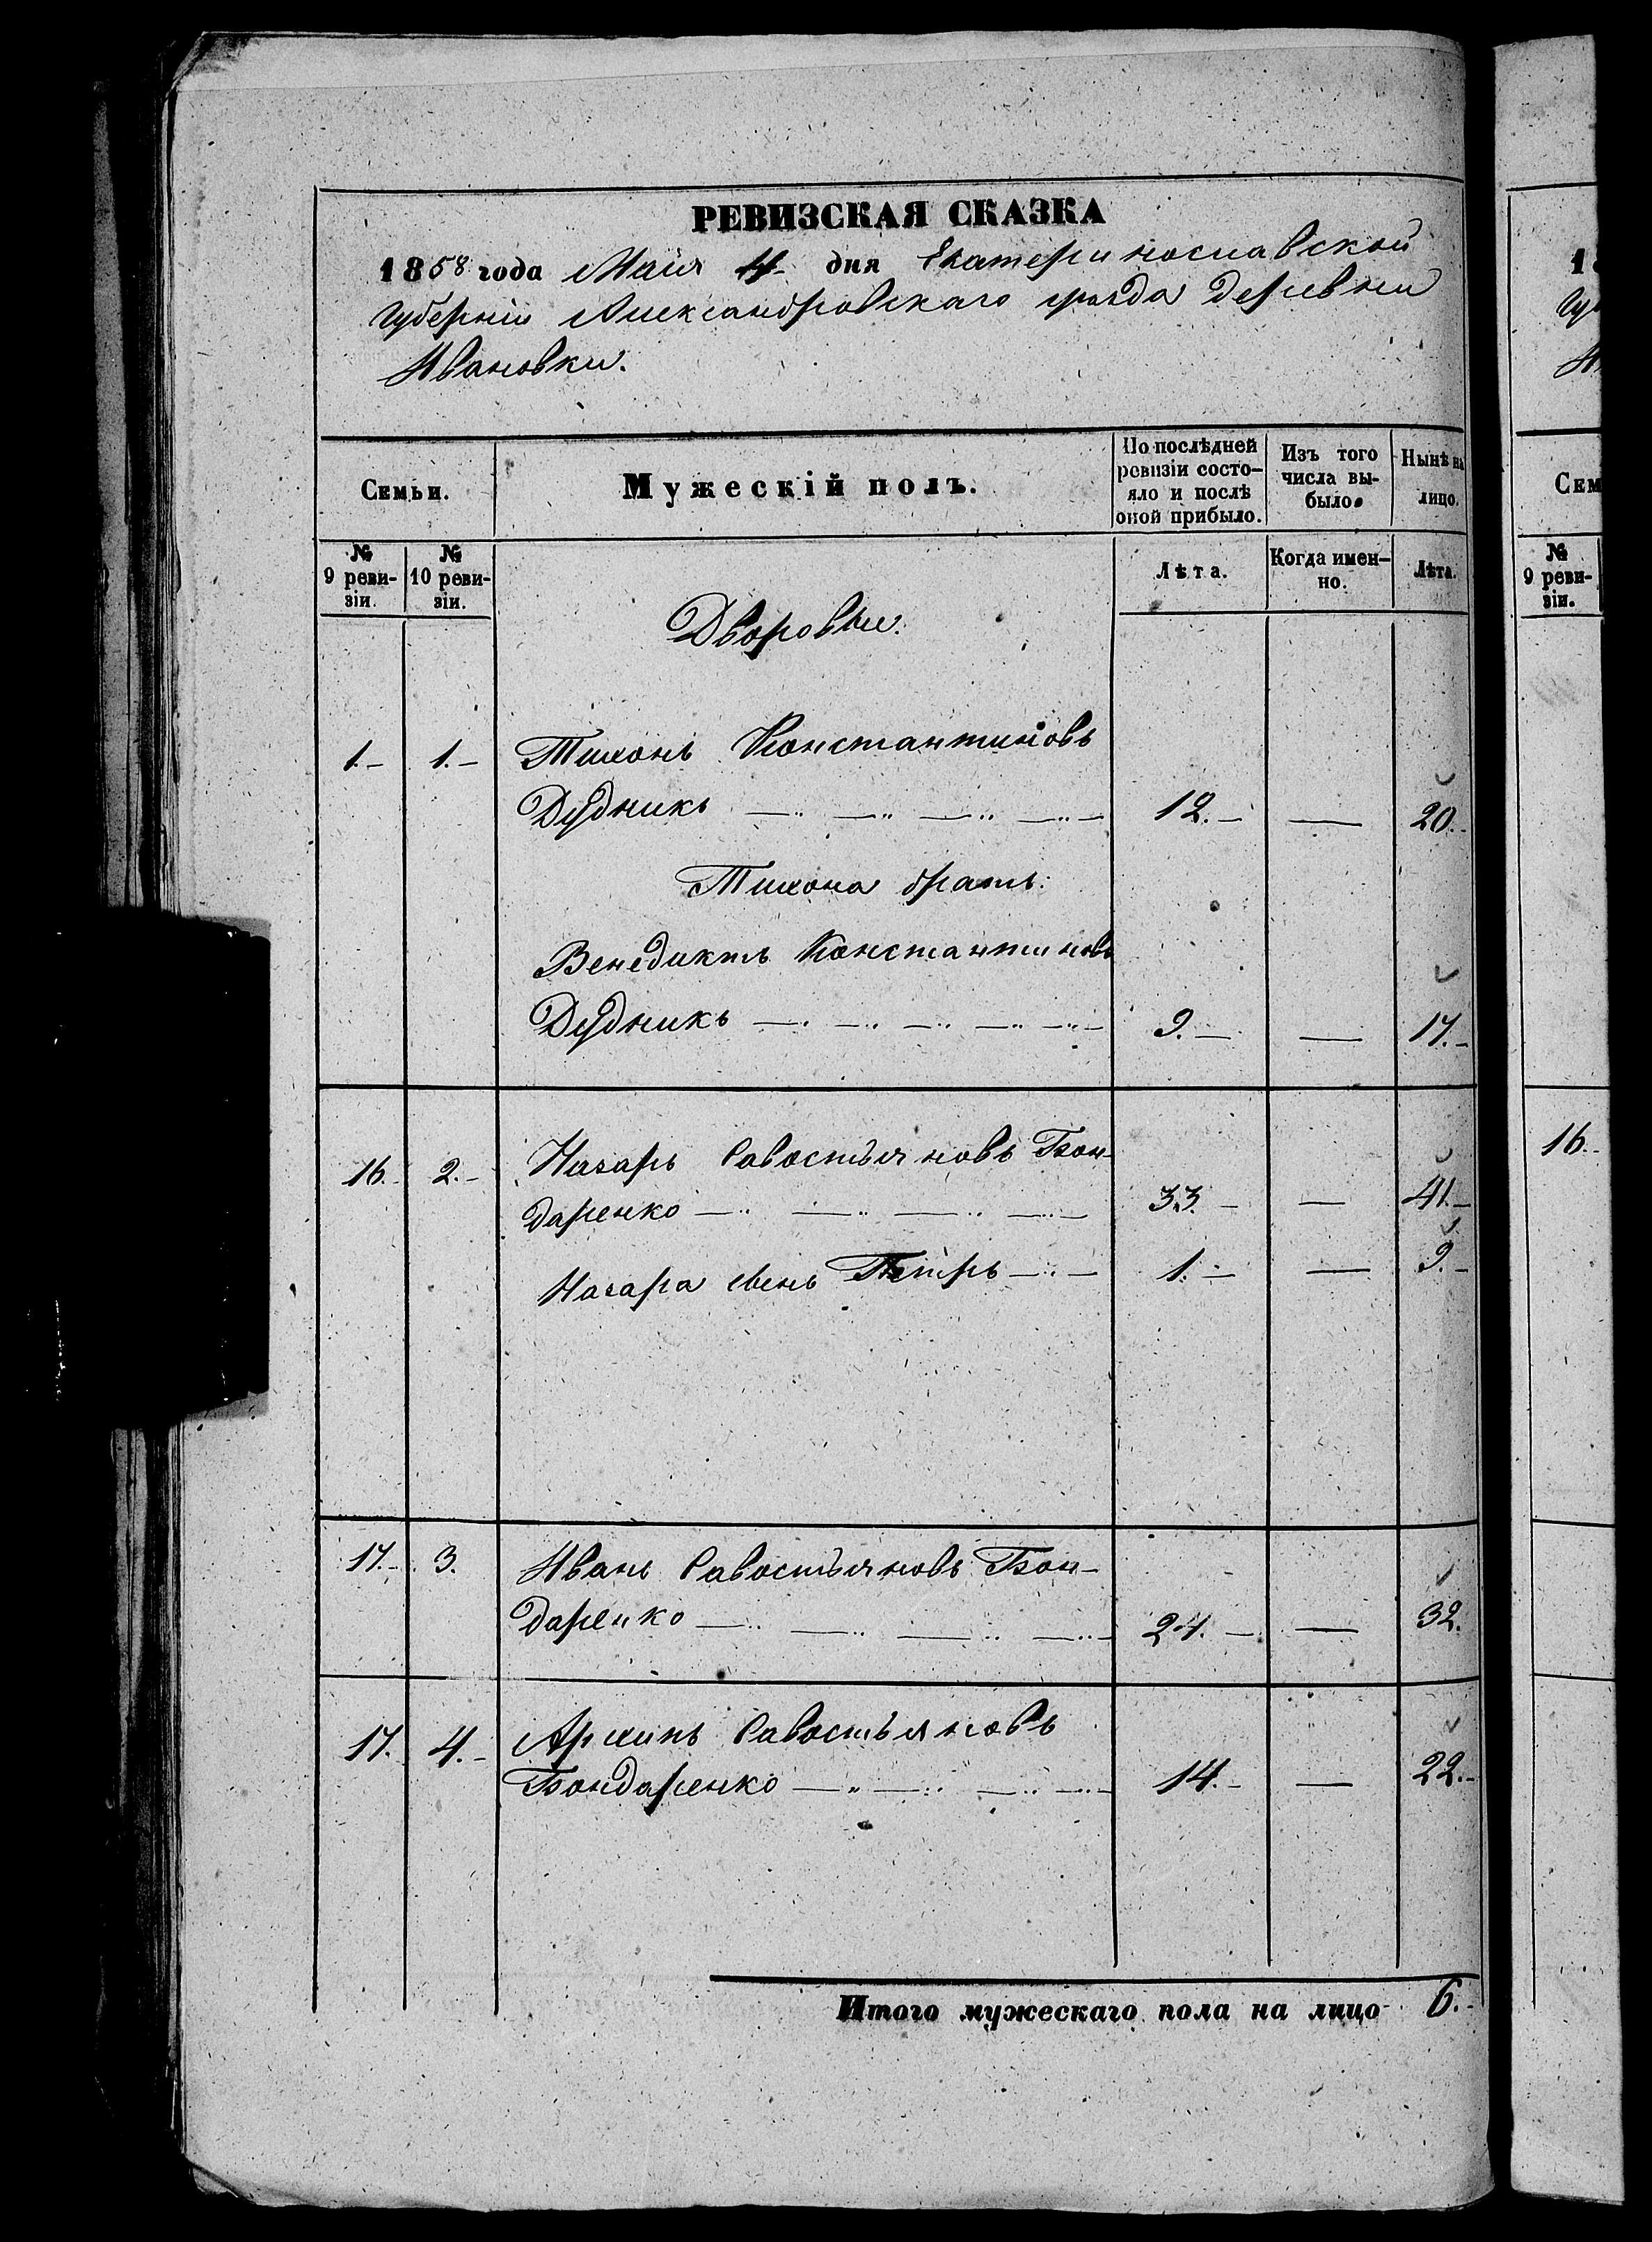 РЕВИЗСКАЯ СКАЗКА
1858 года Маія 4 дня Екатеринославской
Губерніи Александровскаго уѣзда деревни
Ивановки.
Семьи.
Мужескій полъ.
По послѣдней ревизіи состояло и послѣ оной прибыло.
Изъ того числа выбыло.
Нынѣ на лицо.
№ 9 ревизіи.
№ 10 ревизіи.
Лѣта.
Когда именно.
Лѣта.
Дворовые.
1.- 1.- Тихонъ Константиновъ
Дудникъ 12.- — 20.-
Тихона братъ:
Венедиктъ Константиновъ
Дудникъ 9.- — 17.-
16.- 2.- Назаръ Савостьяновъ Бон-
даренко 33.- — 41.-
Назара сынъ Петръ 1.- — 9.-
17.- 3. Иванъ Савостьяновъ Бон-
даренко 24.- — 32.
17. 4.- Архипъ Савостьяновъ
Бондаренко 14.- — 22.-
Итого мужескаго пола на лицо 6.-
Сем
№ 9 ревизіи.
16.-